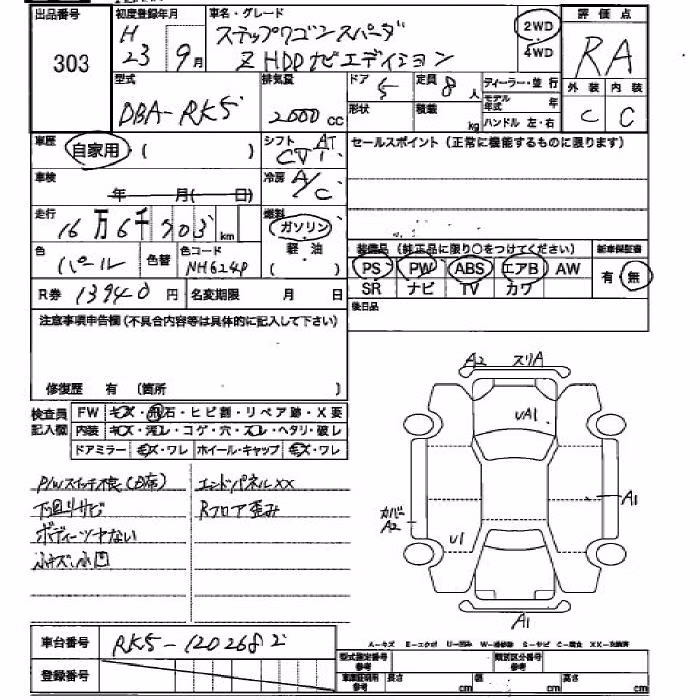 出品番号
303
初度登録年月
H
23 9月
車名・グレード
ステップワゴンスパーダ
Z HDDナビエディション
2WD
4WD
評価点
RA
外装 内装
C C
型式
DBA-RK5
排気量
2000cc
ドア 5
形状
定員 8人
積載 kg
ディーラー・並行
モデル年式 年
ハンドル 左・右
車歴
自家用 ( )
シフト AT
CVT
セールスポイント(正常に機能するものに限ります)
車検
年 月( 日)
冷房 A/C
走行
16万6千303km
燃料
ガソリン
軽・油
( )
色
パール
色替
色コード
NH624P
装備品(純正品に限り○をつけてください)
新車保証書
PS PW ABS エアB AW
SR ナビ TV カワ
有・無
R券 13940円
名変期限 月 日
後日品
注意事項申告欄(不具合内容等は具体的に記入して下さい)
修復歴 有 (箇所 )
検査員記入欄
FW キズ・飛石・ヒビ割・リペア跡・X要
内装 キズ・汚レ・コゲ・穴・スレ・ヘタリ・破レ
ドアミラー キズ・ワレ ホイール・キャップ キズ・ワレ
P/Wスイッチ不良(D席)
下回リサビ
ボディーツヤない
小キズ・小凹
エンドパネルXX
Rフロア歪み
A2 スリA
UA1
A1
カバーA2
U1
A1
車台番号
RK5-1202682
登録番号
A-キズ E-エクボ U-凹み W-補修跡 S-サビ C-腐食 XX-交換済
型式指定番号 参考
類別区分番号 参考
車庫証明用 参考
長さ cm
幅 cm
高さ cm